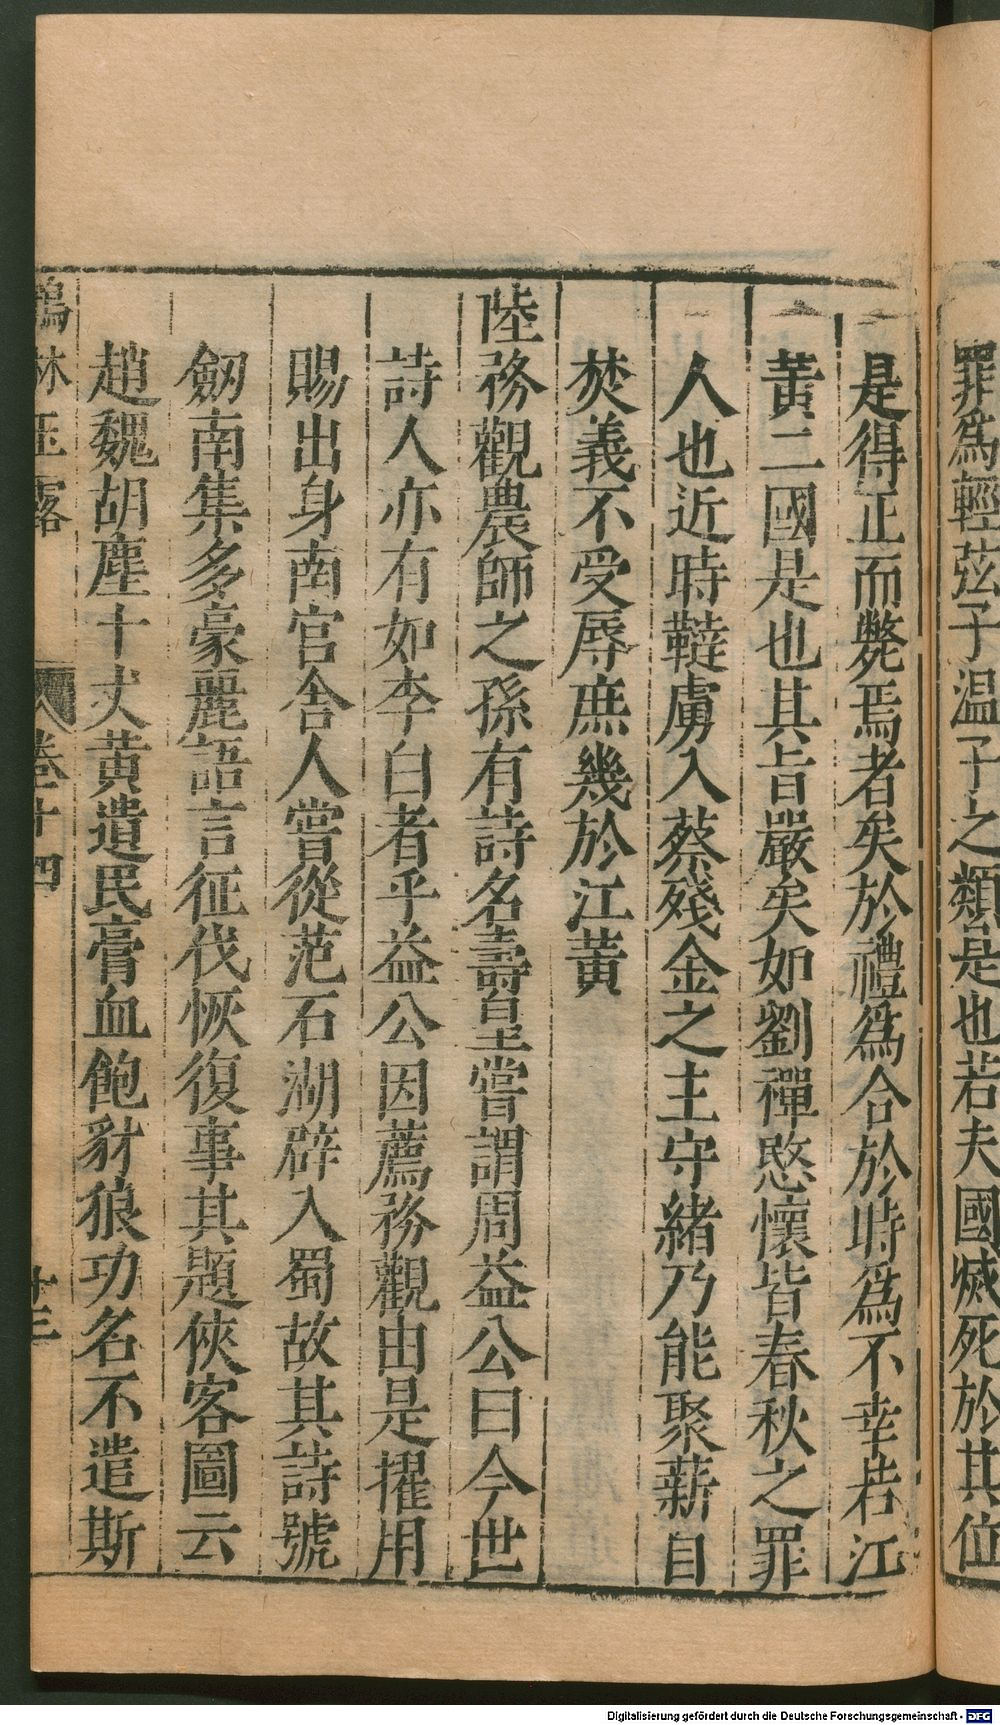 罪爲輕弦子温子之類是也若夫國滅死於其位
是得正而斃焉者矣於禮爲合於時爲不幸若江
黃二國是也其旨嚴矣如劉禪愍懷皆春秋之罪
人也近時韃虜入蔡殘金之主守緒乃能聚薪自
焚義不受辱庶幾於江黃
陸務觀農師之孫有詩名壽皇嘗謂周益公曰今世
詩人亦有如李白者乎益公因薦務觀由是擢用
賜出身南官舍人嘗從范石湖辟入蜀故其詩號
劒南集多豪麗語言征伐恢復事其題俠客圖云
趙魏胡塵十丈黃遺民膏血飽豺狼功名不遣斯
鶴林玉露 卷十四 十三
Digitalisierung gefördert durch die Deutsche Forschungsgemeinschaft - DFG